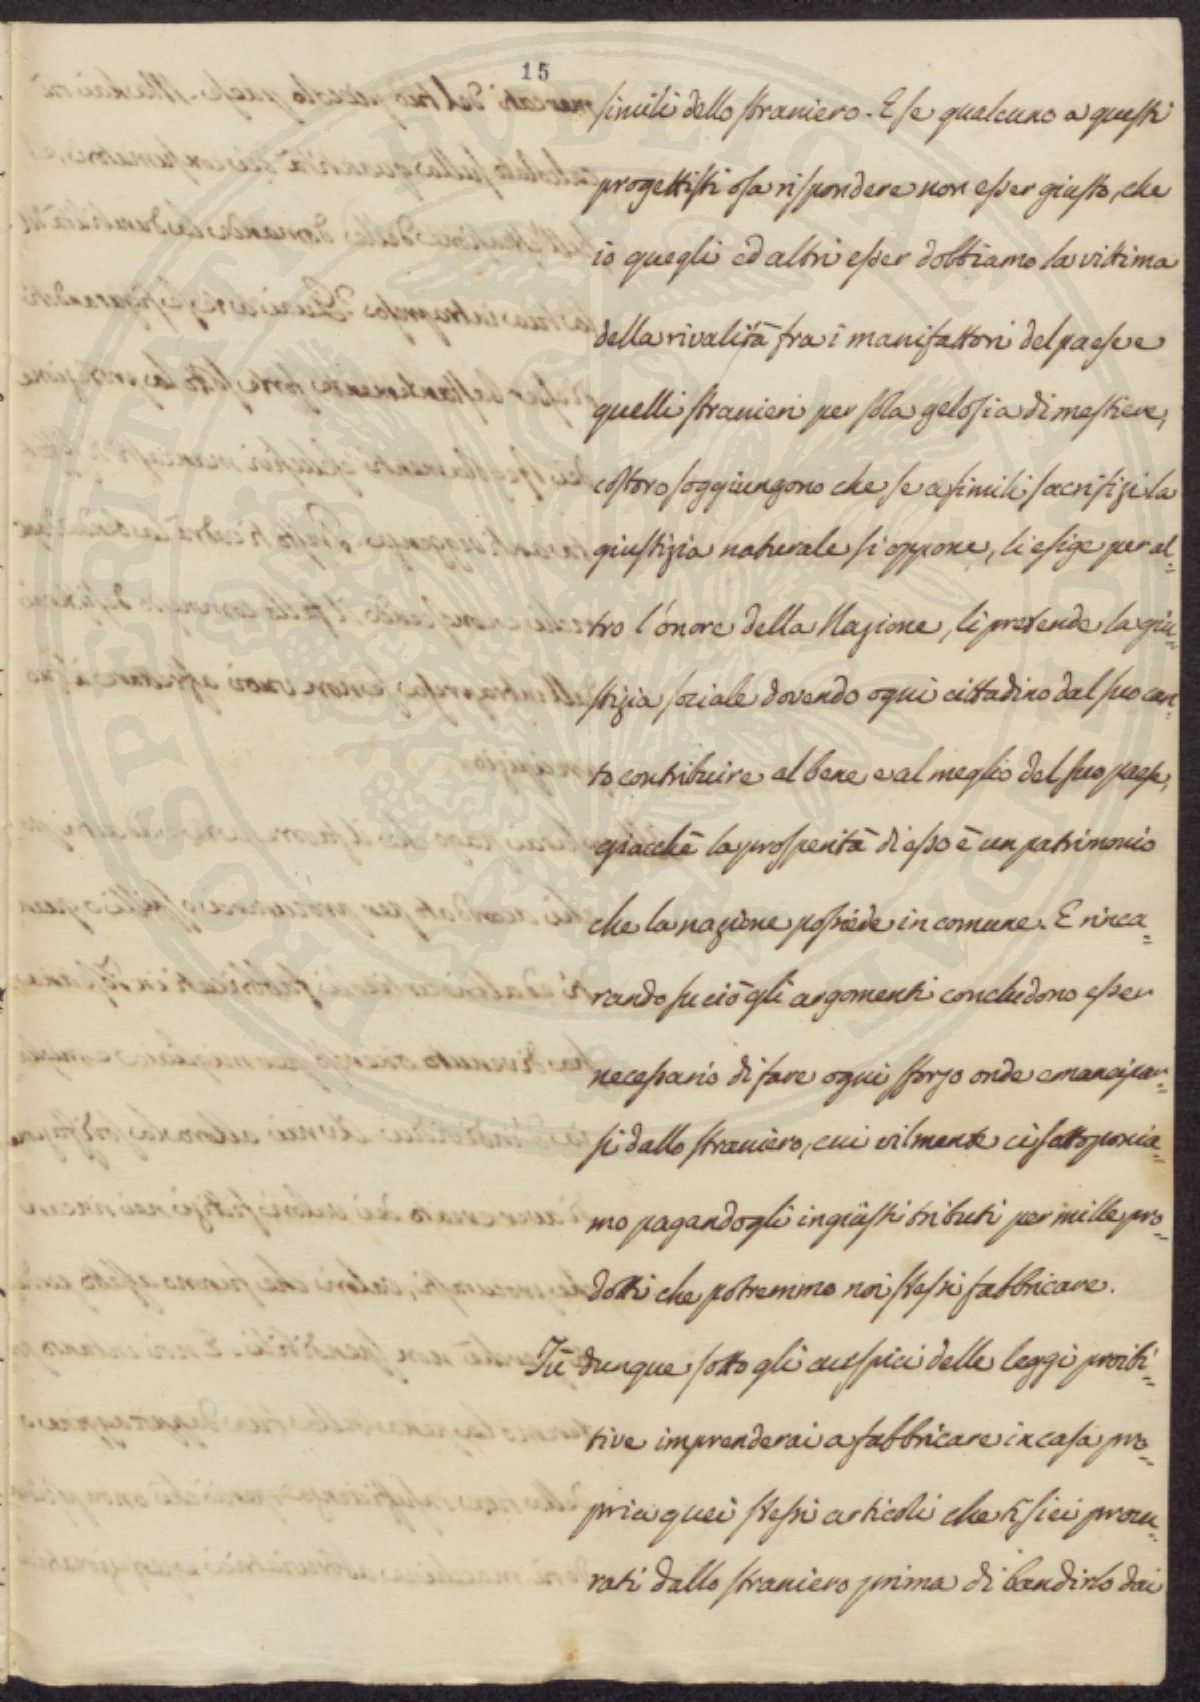 15
simili dello straniero. E se qualcuno a questi
progettisti osa rispondere non esser giusto, che
io quegli ed altri esser dobbiamo la vittima
della rivalità fra i manifattori del paese e
quelli stranieri per sola gelosia di mestiere,
costoro soggiungono che se a simili sacrifizi la
giustizia naturale si oppone, li esige per al=
tro l'onore della Nazione, li pretende la giu=
stizia sociale dovendo ogni cittadino dal suo can=
to contribuire al bene e al meglio del suo paese,
giacchè la prosperità di esso è un patrimonio
che la nazione possiede in comune. E rinca=
rando su ciò gli argomenti concludono esser
necessario di fare ogni sforzo onde emancipar=
si dallo straniero, cui vilmente ci sottoponia=
mo pagandogli ingiusti tributi per mille pro=
dotti che potremmo noi stessi fabbricare.
Tu dunque sotto gli auspici delle leggi proibi=
tive imprenderai a fabbricare in casa pro=
pria quei stessi articoli che ti siei procu=
rati dallo straniero prima di bandirlo dai